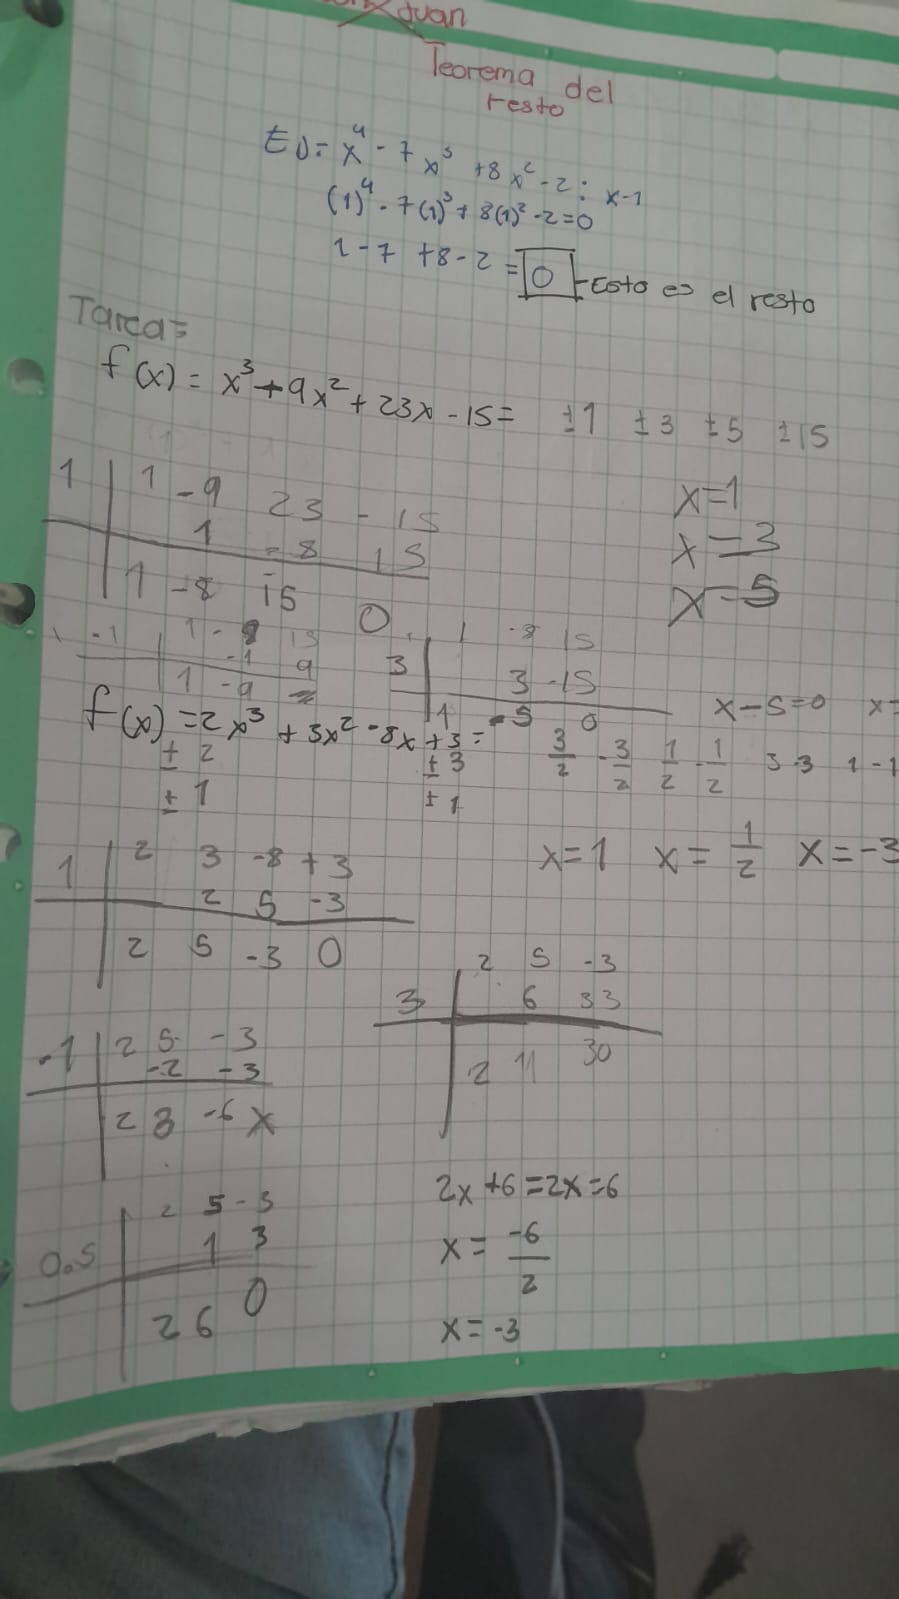 Juan
Teorema del
resto
EJ= x⁴ - 7x³ +8x² -2: x-1
(1)⁴ - 7(1)³ + 8(1)² -2=0
1-7 +8-2 = 0 -Esto es el resto
Tarea=
f(x) = x³+9x²+23x-15= ±1 ±3 ±5 ±15
1 | 1 -9 23 -15
1 -8 15
1 -8 15 0
x=1
x=3
x=5
-1 | 1 -8 15
-1 9
1 -9
3 | 1 -8 15
3 -15
1 -5 0
x-5=0 x=
f(x)=2x³ +3x² -8x+3=
± 2 ± 3
± 1 ± 1
3/2 -3/2 1/2 -1/2 3 -3 1 -1
1 | 2 3 -8 +3
2 5 -3
2 5 -3 0
x=1 x= 1/2 x=-3
3 | 2 5 -3
6 33
2 11 30
-1 | 2 5 -3
-2 -3
2 3 -6 x
0.5 | 2 5 -3
1 3
2 6 0
2x+6=2x=6
x= -6/2
x=-3